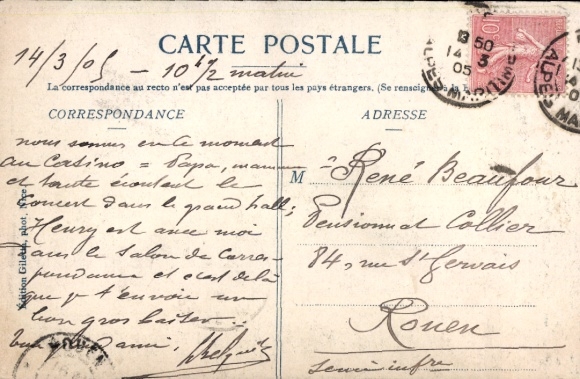 CARTE POSTALE
14/3/05 - 10 h 1/2 matin
La correspondance au recto n'est pas acceptée par tous les pays étrangers. (Se renseigner à la
CORRESPONDANCE
nous sommes en ce moment
au Casino = Papa, maman
et tante écoutent le
concert dans le grand hall;
Henry est avec moi
dans le salon de corres
pondance et c'est de là
que je t'envoie un
bon gros baiser
ami,
Edition Giletta, phot. Nice
ADRESSE
M René Beaufour
Pensionnat Collier
84, rue St Gervais
Rouen
Seine infre
50
14 3
05
ALPES MAR
10
ALPES
MA
ROUEN